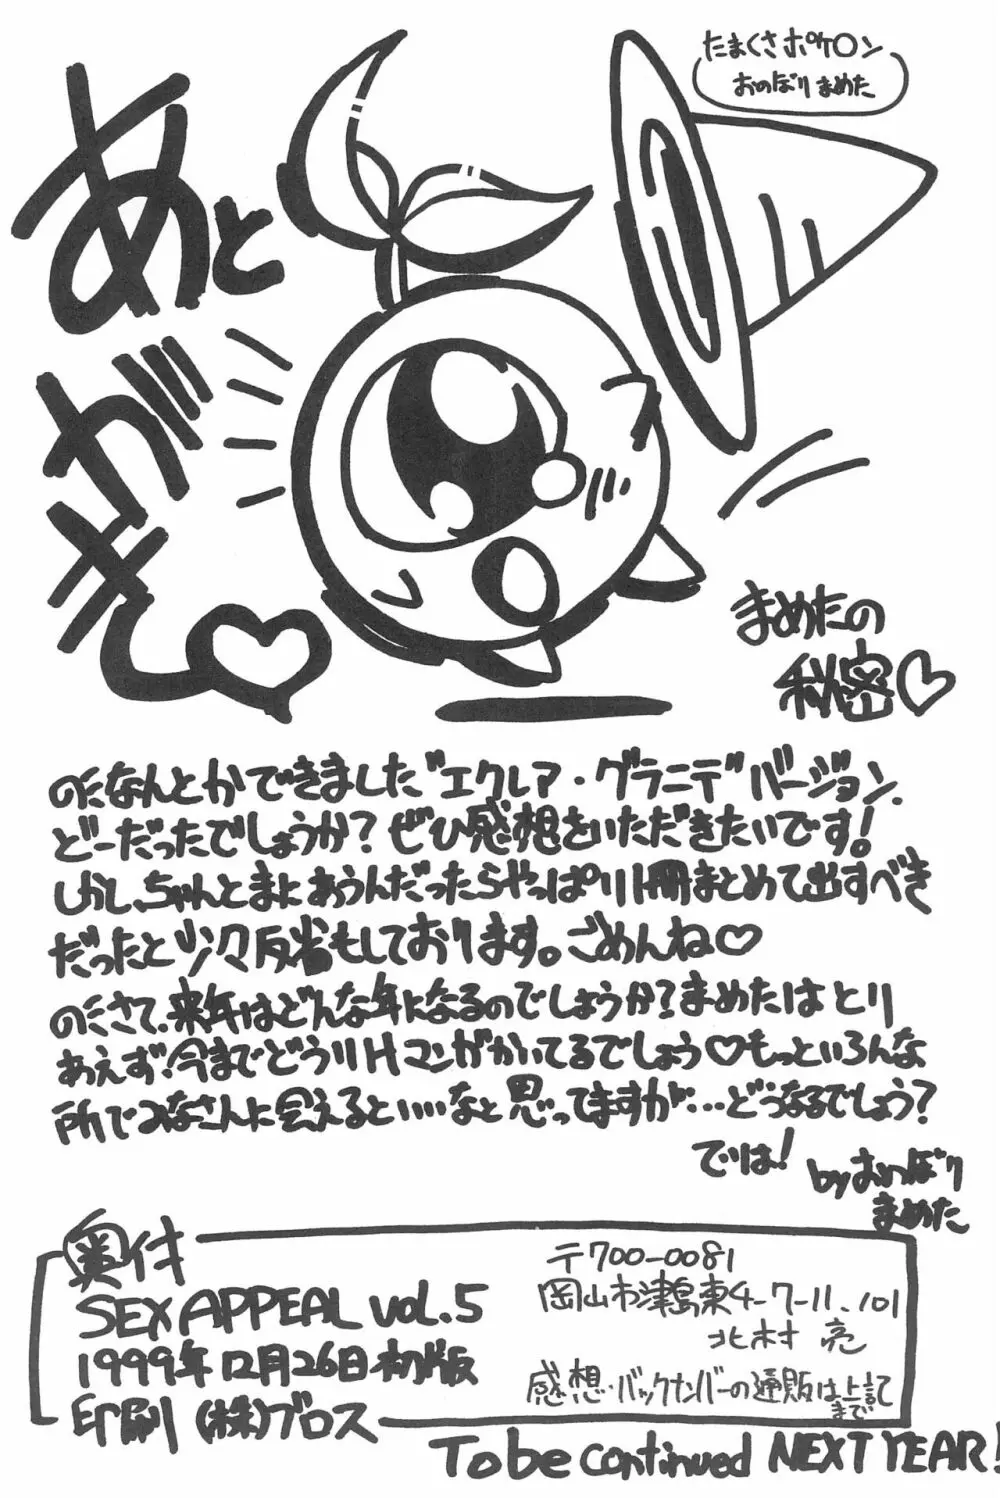 たまくさポケ○ン
おのぼりまめた
あとがき
まめたの
秘密♡
のになんとかできました"エクレア・グラニテ"バージョン、
どーだったでしょうか?ぜひ感想をいただきたいです!
しかし、ちゃんとまにあうんだったらやっぱり1冊まとめて出すべき
だったと少々反省もしております。ごめんね♡
のにさて、来年はどんな年になるのでしょうか?まめたはとり
あえず今までどうりHマンガかいてるでしょう♡もっといろんな
所でみなさんに会えるといい…なと思ってますが…どうなるでしょう?
では!
byおのぼり
まめた
奥付
SEX APPEAL vol.5
1999年12月26日初版
印刷 (株)ブロス
〒700-0081
岡山市津島東4-7-11、101
北村 亮
感想・バックナンバーの通販は上記
まで
To be continued NEXT YEAR!